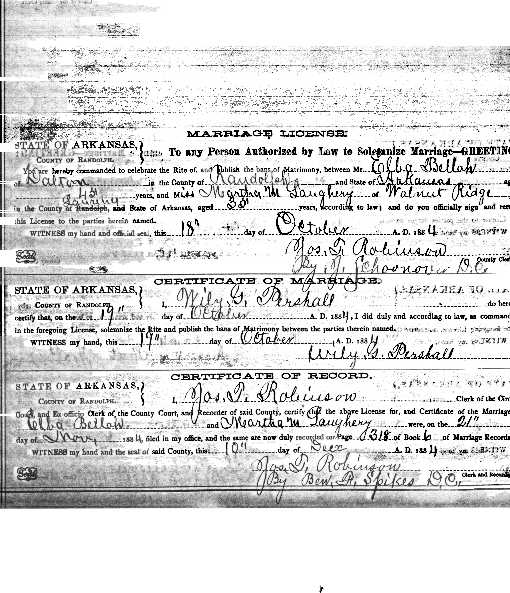 MARRIAGE LICENSE.
STATE OF ARKANSAS,
COUNTY OF RANDOLPH.
To any Person Authorized by Law to Solemnize Marriage—GREETING
You are hereby commanded to celebrate the Rite of, and Publish the bans of Matrimony, between Mr. Elba Bellah
of in the County of Randolph and State of Arkansas
years, and Miss Martha M Laughery of Walnut Ridge
in the County of Randolph, and State of Arkansas, aged years, according to law; and do you officially sign and
this License to the parties herein named.
WITNESS my hand and official seal, this 18" day of October A. D. 1884
Jos. T. Robinson County Clerk
By J. Schoonover D.C.
CERTIFICATE OF MARRIAGE.
STATE OF ARKANSAS,
COUNTY OF RANDOLPH.
I, Wily G. Pershall do
certify that, on the 19" day of October A.D. 1884, I did duly and according to law, as
in the foregoing License, solemnise the Rite and publish the bans of Matrimony between the parties therein named.
WITNESS my hand, this 19" day of October A. D. 1884
Wily G. Pershall
CERTIFICATE OF RECORD.
STATE OF ARKANSAS,
COUNTY OF RANDOLPH.
I, Jos. T. Robinson Clerk of the
Court, and Ex officio Clerk of the County Court, and Recorder of said County, certify that the above License for, and Certificate of the Marriage
Elba Bellah and Martha M Laughery were, on the 21"
day of Nov 1884 filed in my office, and the same are now duly recorded on Page 318 of Book 6 of Marriage Records
WITNESS my hand and the seal of said County, this 10" day of Dec A. D. 1884
Jos. T. Robinson
Clerk and
By Ben. A. Spikes D.C.